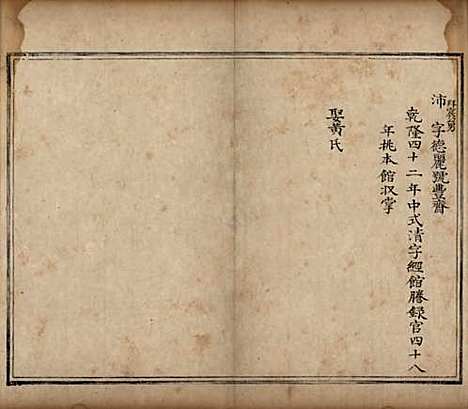 沛 字德麗號豐齋
乾隆四十二年中式清字經館謄錄官四十八
年挑本館収掌
娶黃氏